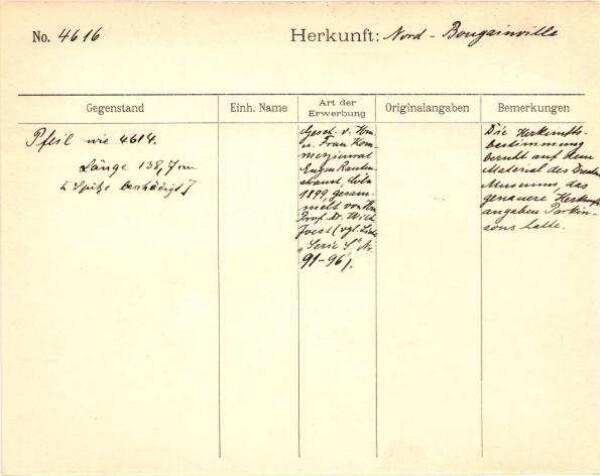 No. 4616 Herkunft: Nord-Bougainville
Gegenstand
Einh. Name
Art der
Erwerbung
Originalangaben
Bemerkungen
Pfeil wie 4614.
Länge 138,7 cm
[Spitze beschädigt]
Gesch. v. Hrn
u. Frau Kom-
merzienrat
Eugen Rauten-
strauch, Cöln
1899, gesam-
melt von Hrn
Prof. Dr. Wilh
Joest (vgl. Liste
„Serie S", Nr.
91-96).
Die Herkunfts-
bestimmung
beruht auf dem
Material des
Museums, das
genauere Herkunfts-
angaben Parkin-
sons hatte.